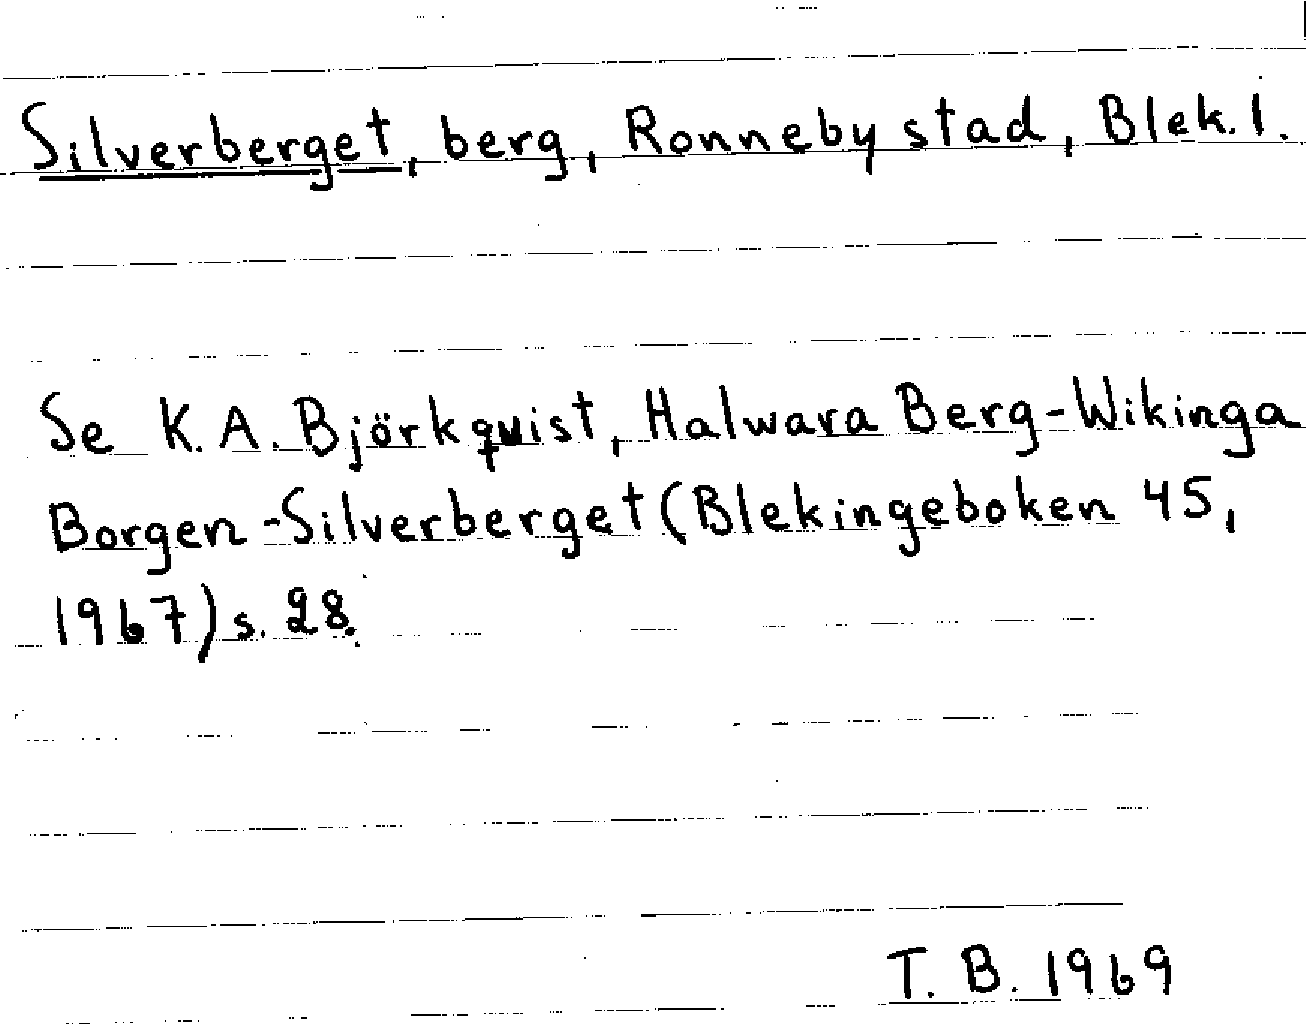 Silverberget, berg, Ronneby stad, Blek. l.
Se K. A. Björkquist, Halwara Berg-Wikinga
Borgen-Silverberget (Blekingeboken 45,
1967) s. 28.
T. B. 1969